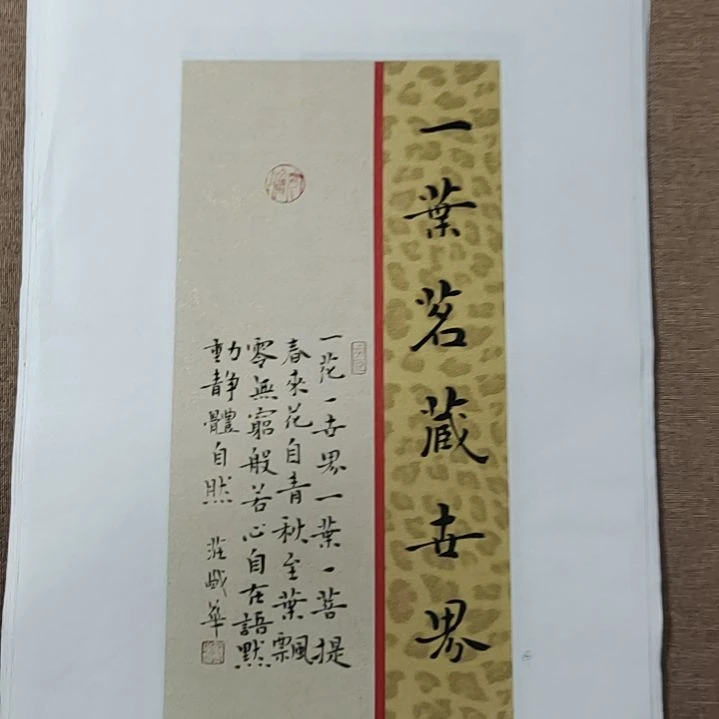 一葉茗藏世界
一花一世界一葉一菩提
春來花自青秋至葉飄
零無窮般若心自在語默
動靜體自然 莊啟華